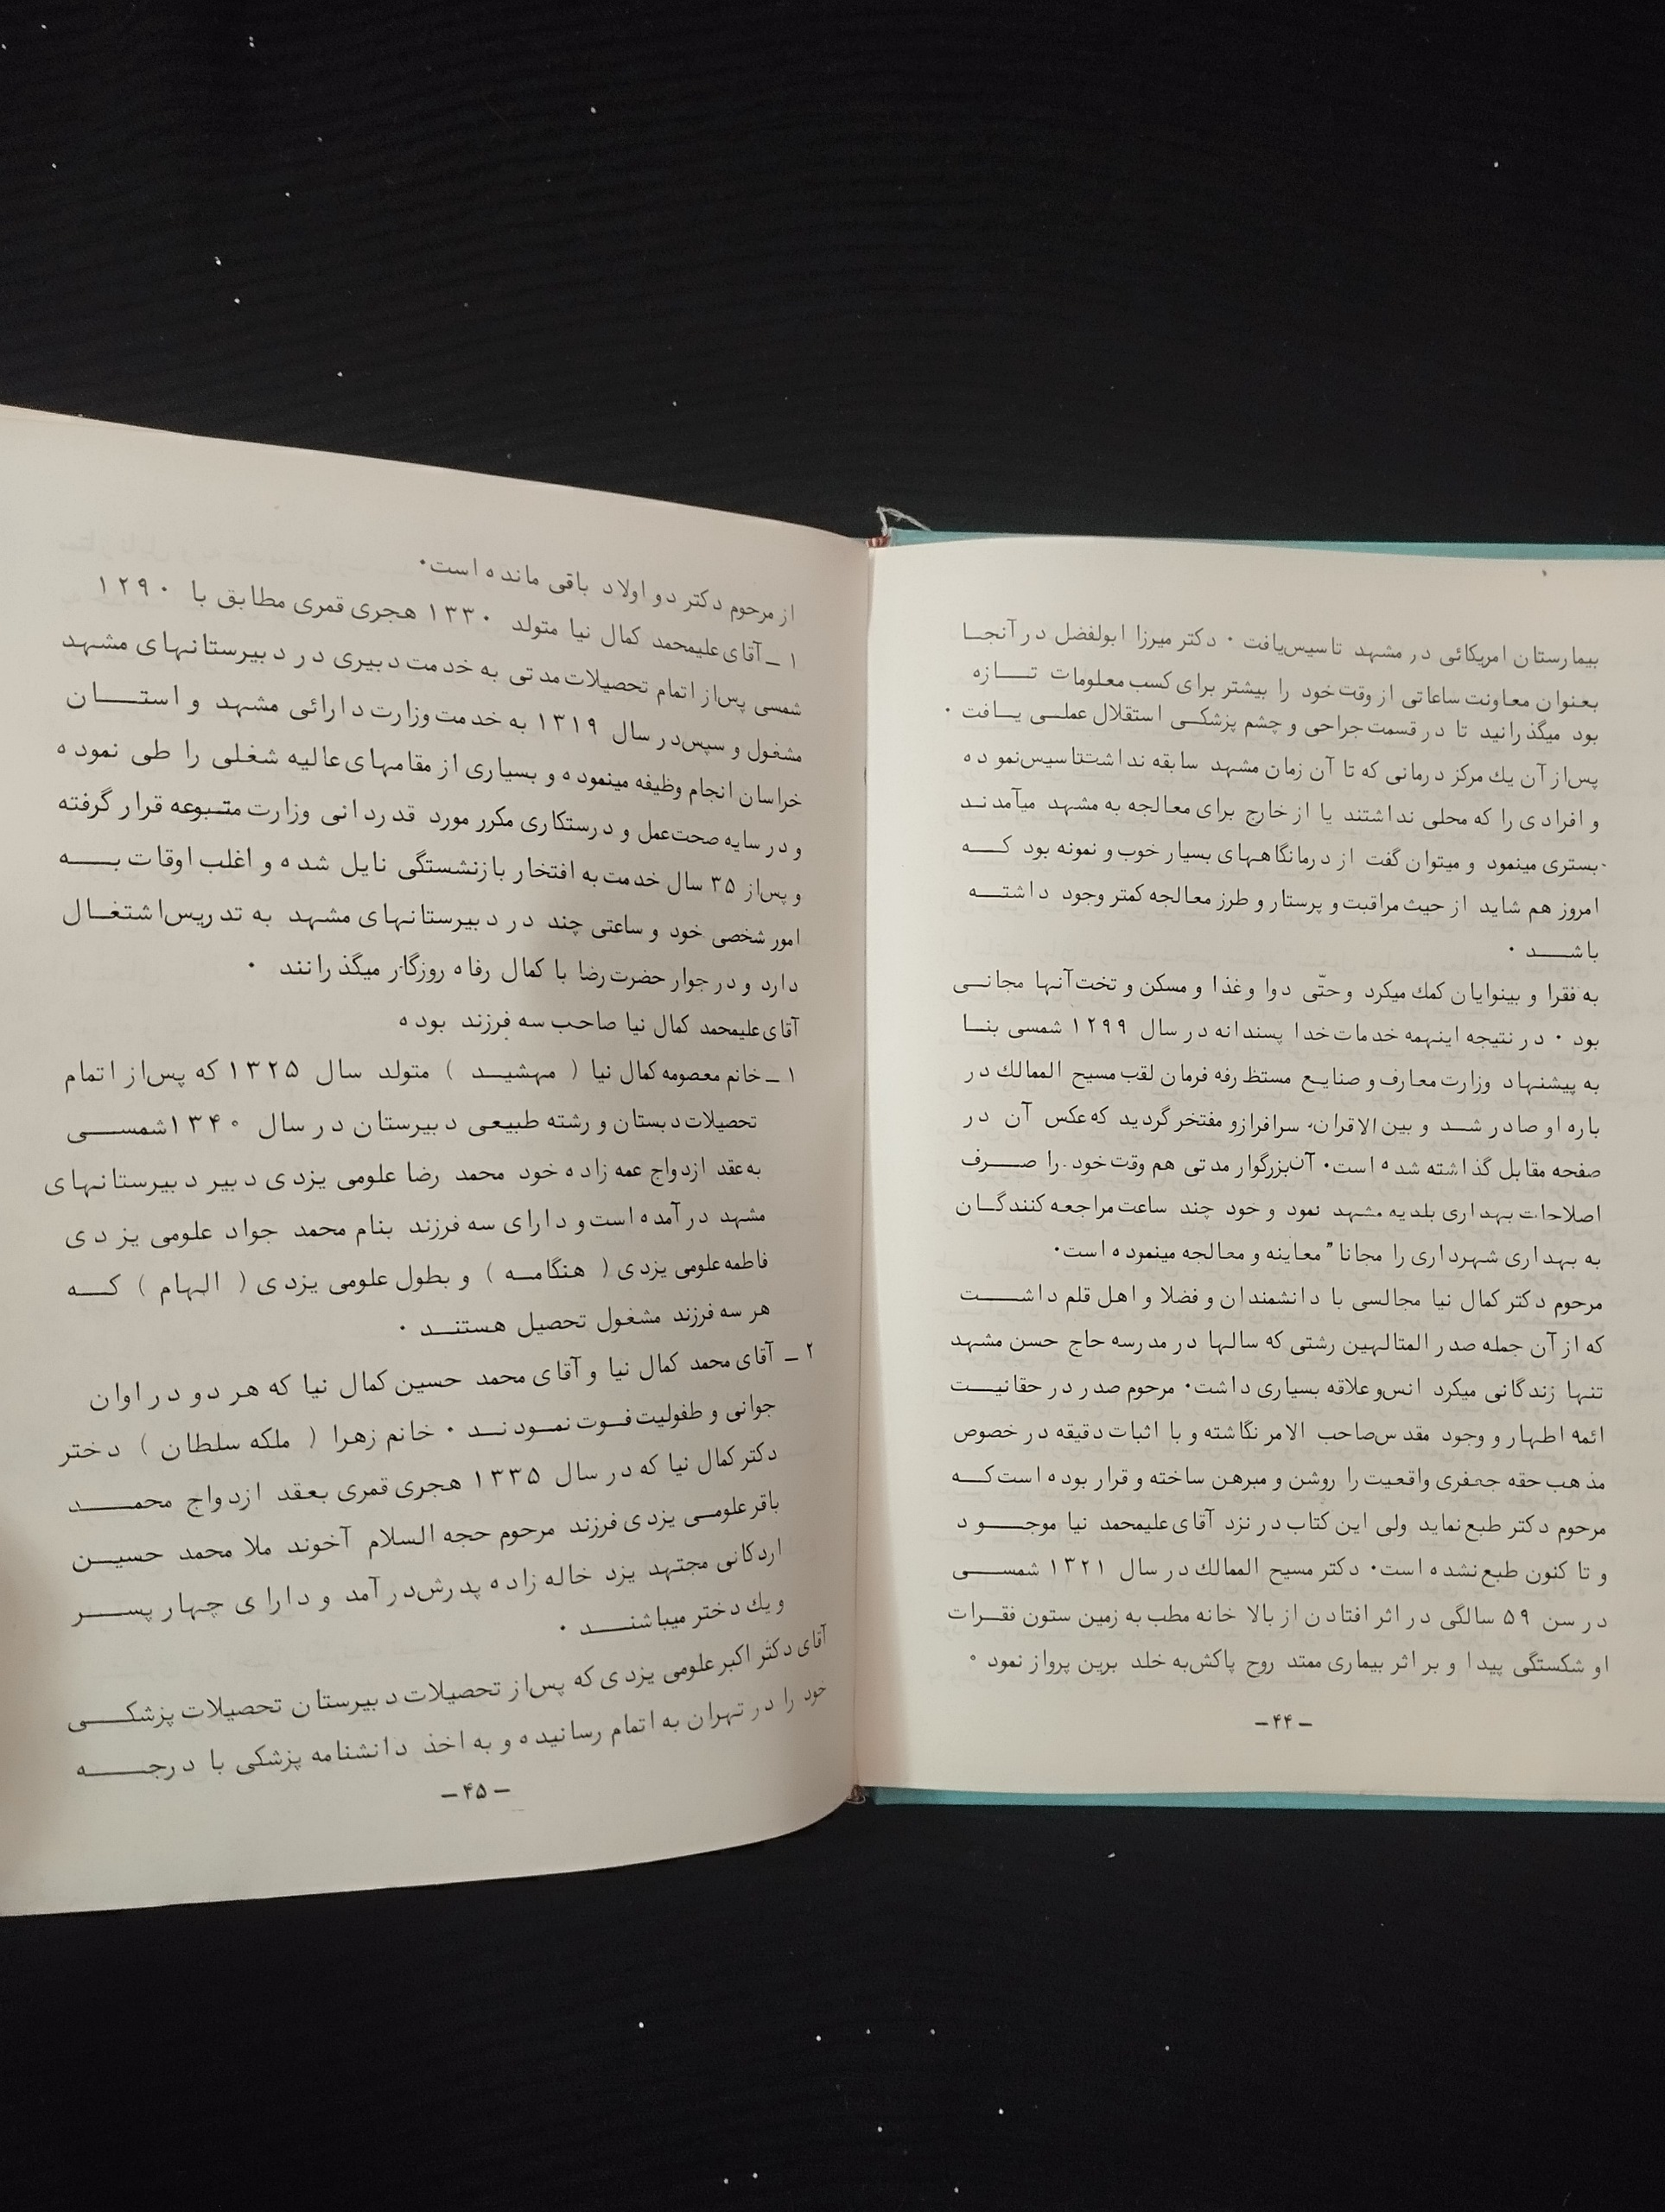 بیمارستان امریکائی در مشهد تاسیس‌یافت ۰ دکتر میرزا ابولفضل در آنجا
بعنوان معاونت ساعاتی از وقت خود را بیشتر برای کسب معلومات تازه
بود میگذرانید تا در قسمت جراحی و چشم پزشکی استقلال عملی یافت ۰
پس‌از آن یك مرکز درمانی که تا آن زمان مشهد سابقه نداشت‌تاسیس‌نموده
و افرادی را که محلی نداشتند یا از خارج برای معالجه به مشهد میآمدند
بستری مینمود و میتوان گفت از درمانگاههای بسیار خوب و نمونه بود که
امروز هم شاید از حیث مراقبت و پرستار و طرز معالجه کمتر وجود داشته
باشد ۰
به فقرا و بینوایان کمك میکرد و حتّی دوا و غذا و مسکن و تخت آنها مجانی
بود ۰ در نتیجه اینهمه خدمات خدا پسندانه در سال ۱۲۹۹ شمسی بنا
به پیشنهاد وزارت معارف و صنایع مستظرفه فرمان لقب مسیح الممالك در
باره او صادر شد و بین‌الاقران، سرافراز و مفتخر گردید که عکس آن در
صفحه مقابل گذاشته شده است۰ آن‌بزرگوار مدتی هم وقت خود را صرف
اصلاحات بهداری بلدیه مشهد نمود و خود چند ساعت مراجعه کنندگان
به بهداری شهرداری را مجانا" معاینه و معالجه مینموده است۰
مرحوم دکتر کمال نیا مجالسی با دانشمندان و فضلا و اهل قلم داشت
که از آن جمله صدر المتالهین رشتی که سالها در مدرسه حاج حسن مشهد
تنها زندگانی میکرد انس‌و علاقه بسیاری داشت۰ مرحوم صدر در حقانیت
ائمه اطهار و وجود مقدس‌صاحب الامر نگاشته و با اثبات دقیقه در خصوص
مذهب حقه جعفری واقعیت را روشن و مبرهن ساخته و قرار بوده است که
مرحوم دکتر طبع نماید ولی این کتاب در نزد آقای علیمحمد نیا موجود
و تا کنون طبع نشده است۰ دکتر مسیح الممالك در سال ۱۳۲۱ شمسی
در سن ۵۹ سالگی در اثر افتادن از بالا خانه مطب به زمین ستون فقرات
او شکستگی پیدا و بر اثر بیماری ممتد روح پاکش‌به خلد برین پرواز نمود ۰
ــ ۴۴ ــ
از مرحوم دکتر دو اولاد باقی مانده است۰
۱ ــ آقای علیمحمد کمال نیا متولد ۱۳۳۰ هجری قمری مطابق با ۱۲۹۰
شمسی پس‌از اتمام تحصیلات مدتی به خدمت دبیری در دبیرستانهای مشهد
مشغول و سپس‌در سال ۱۳۱۹ به خدمت وزارت دارائی مشهد و استان
خراسان انجام وظیفه مینموده و بسیاری از مقامهای عالیه شغلی را طی نموده
و در سایه صحت‌عمل و درستکاری مکرر مورد قدردانی وزارت متبوعه قرار گرفته
و پس‌از ۳۵ سال خدمت به افتخار بازنشستگی نایل شده و اغلب اوقات به
امور شخصی خود و ساعتی چند در دبیرستانهای مشهد به تدریس‌اشتغال
دارد و در جوار حضرت رضا با کمال رفاه روزگار میگذرانند ۰
آقای علیمحمد کمال نیا صاحب سه فرزند بوده
۱ ــ خانم معصومه کمال نیا ( مهشید ) متولد سال ۱۳۲۵ که پس‌از اتمام
تحصیلات دبستان و رشته طبیعی دبیرستان در سال ۱۳۴۰شمسی
به عقد ازدواج عمه زاده خود محمد رضا علومی یزدی دبیر دبیرستانهای
مشهد در آمده است و دارای سه فرزند بنام محمد جواد علومی یزدی
فاطمه علومی یزدی ( هنگامه ) و بطول علومی یزدی ( الهام ) که
هر سه فرزند مشغول تحصیل هستند ۰
۲ ــ آقای محمد کمال نیا و آقای محمد حسین کمال نیا که هر دو در اوان
جوانی و طفولیت فوت نمودند ۰ خانم زهرا ( ملکه سلطان ) دختر
دکتر کمال نیا که در سال ۱۳۳۵ هجری قمری بعقد ازدواج محمد
باقر علومی یزدی فرزند مرحوم حجه السلام آخوند ملا محمد حسین
اردکانی مجتهد یزد خاله زاده پدرش‌در آمد و دارای چهار پسر
و یك دختر میباشند ۰
آقای دکتر اکبر علومی یزدی که پس‌از تحصیلات دبیرستان تحصیلات پزشکی
خود را در تهران به اتمام رسانیده و به اخذ دانشنامه پزشکی با درجه
ــ ۴۵ ــ